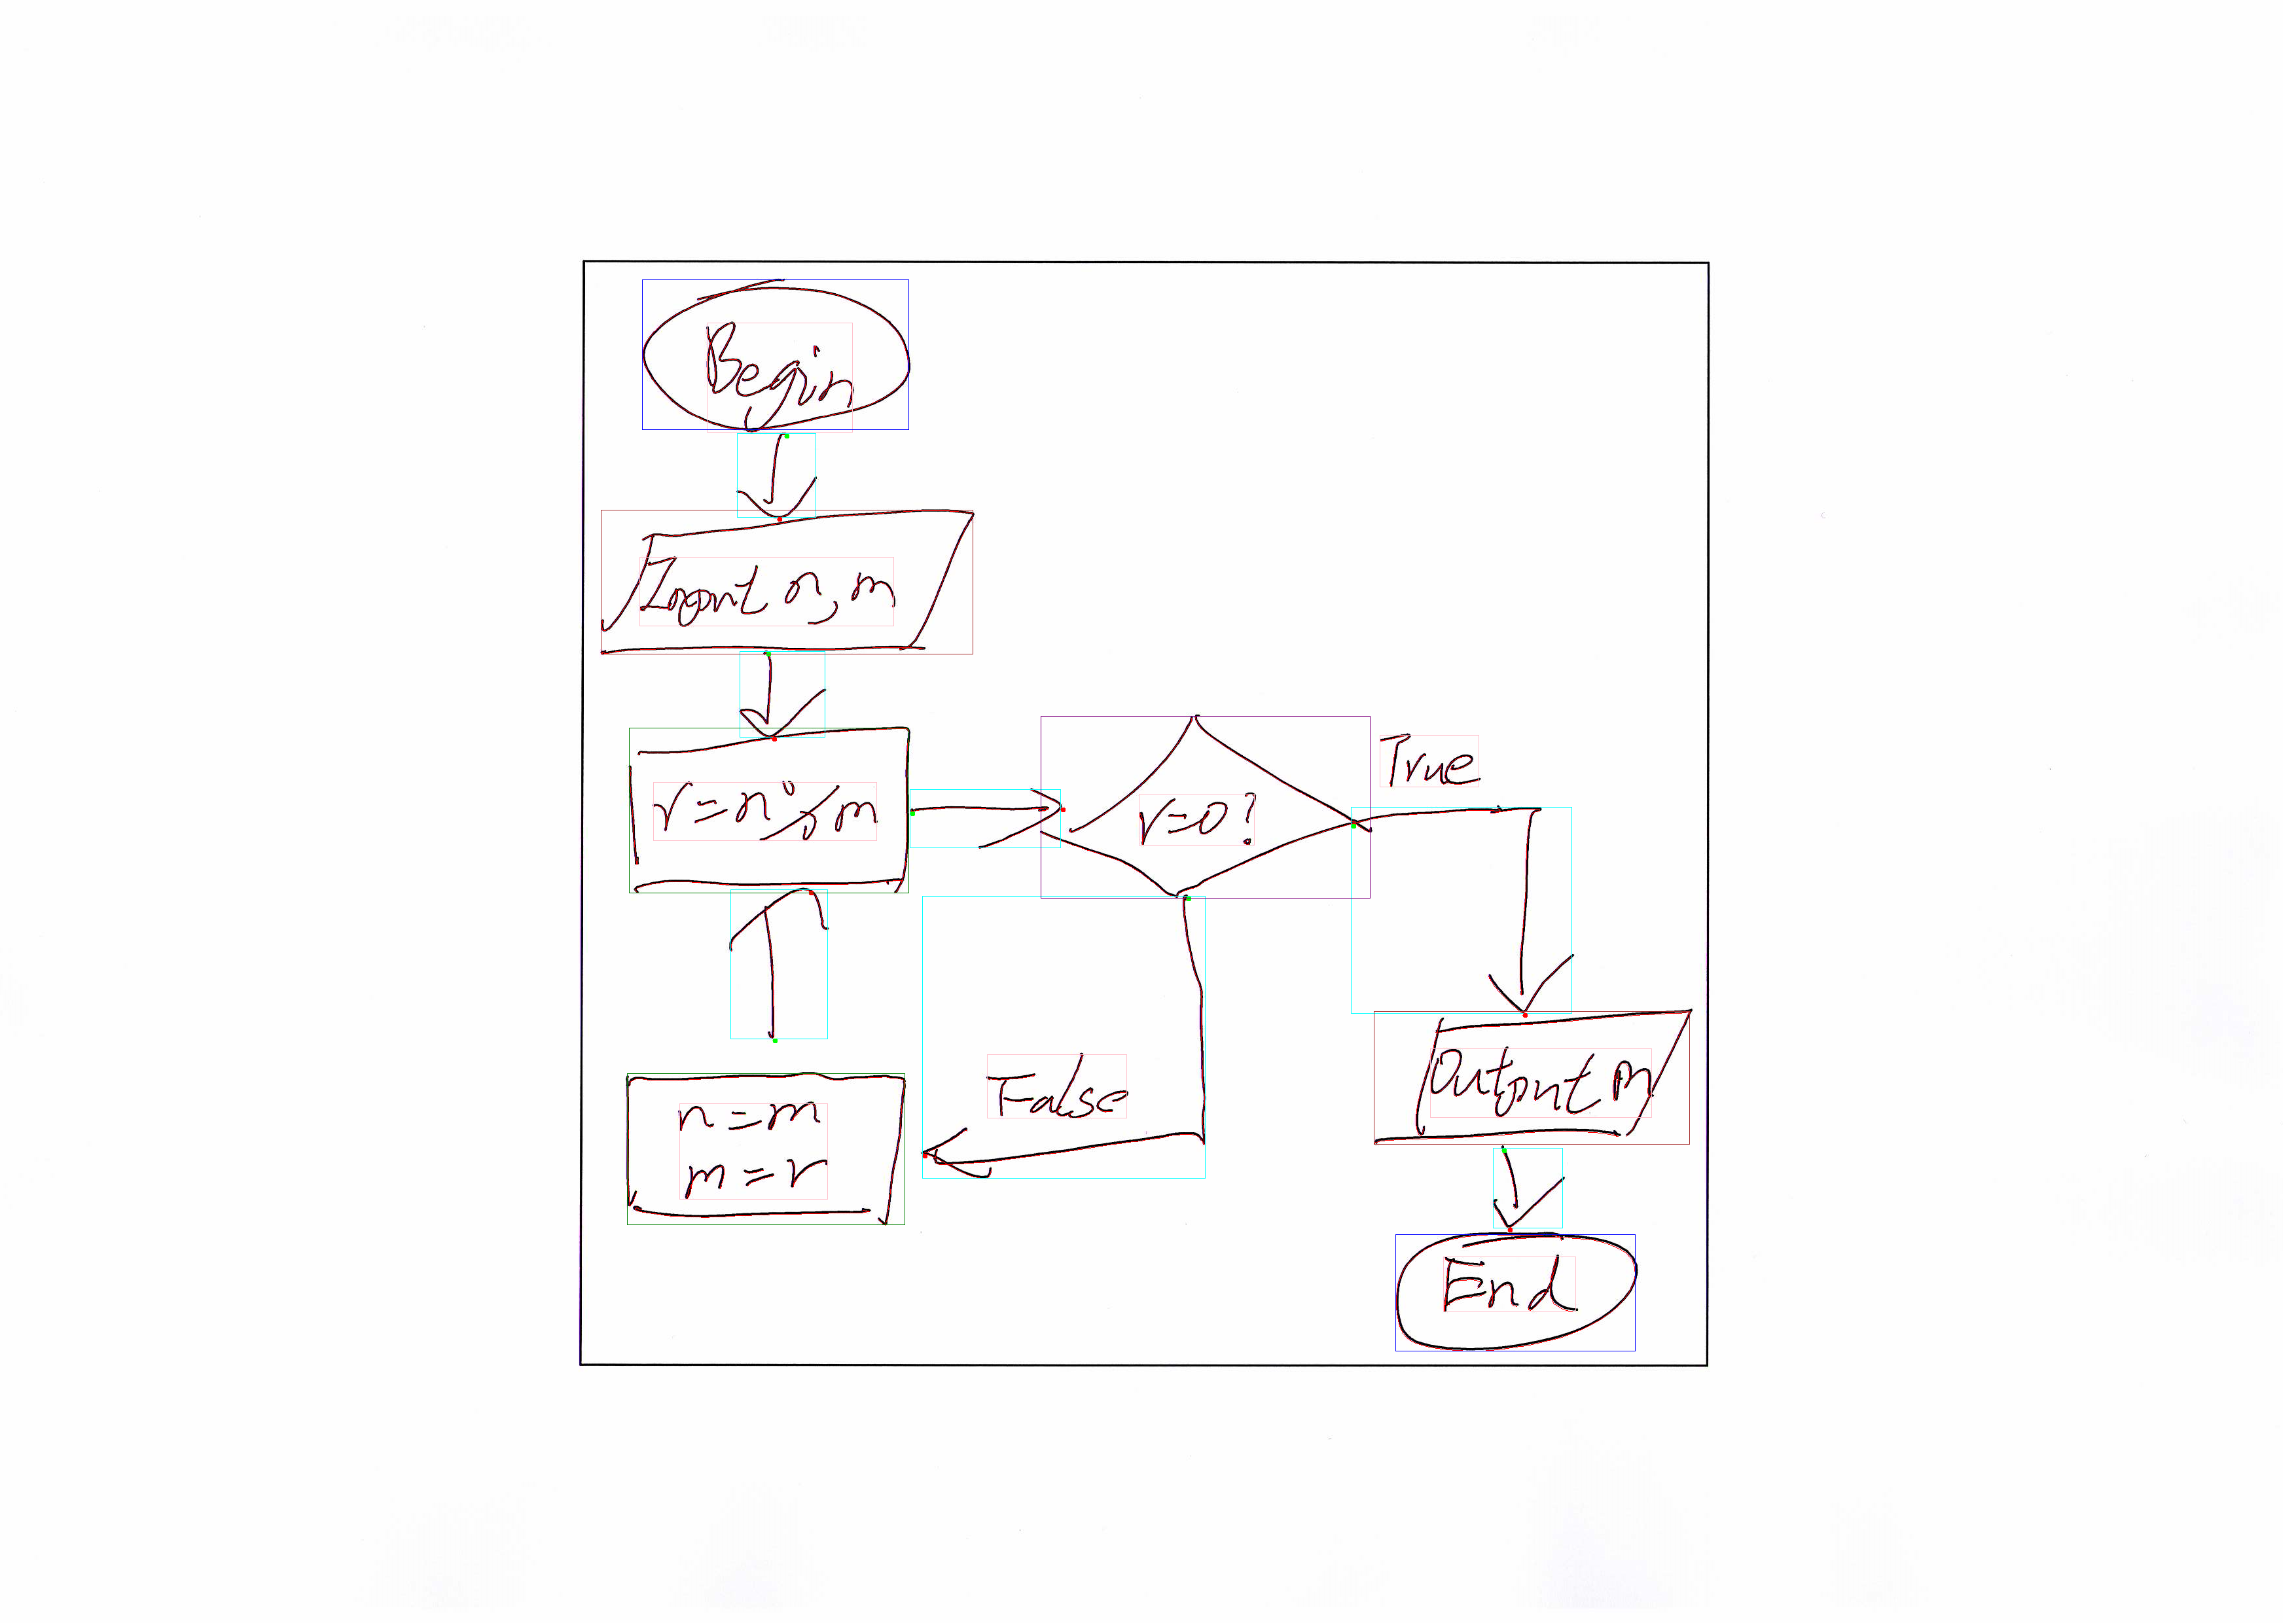 Begin
Input n, m
r=n%m
r=0?
True
False
n=m
m=r
Output m
End